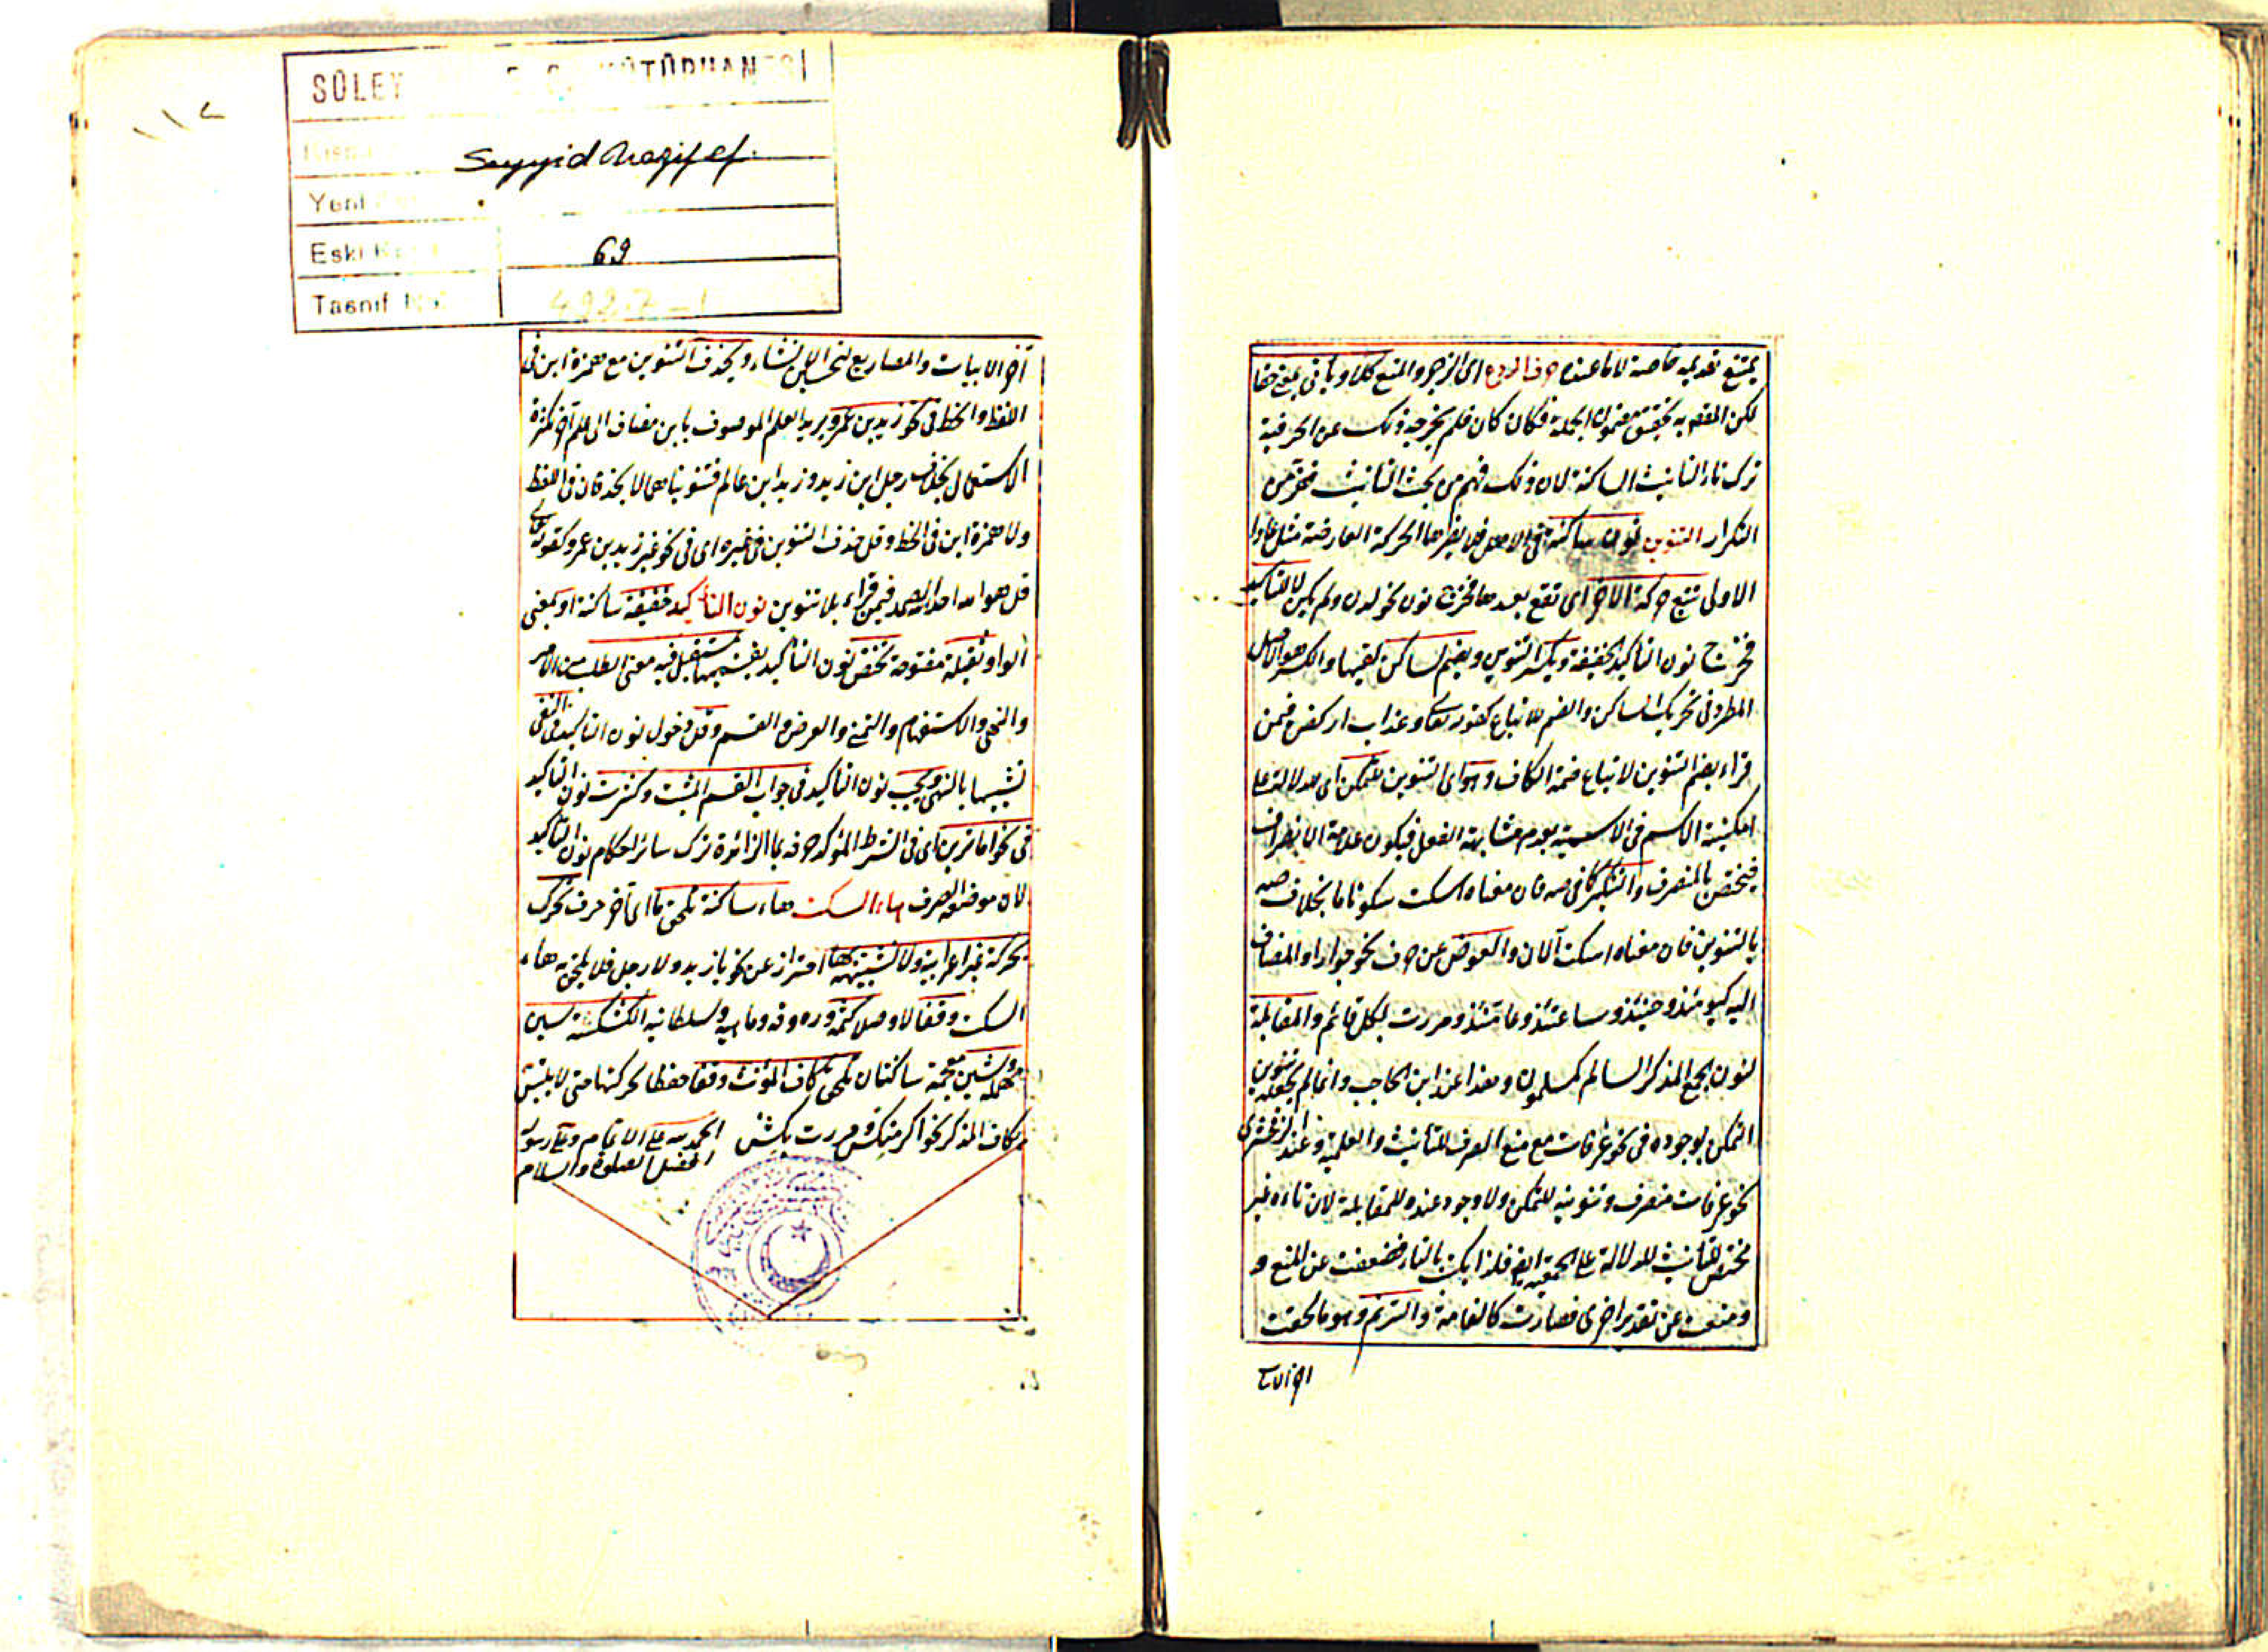 يمتنع تقديمه خاصة لا ما عنده حرف الردع اى الزجر والمنع كلا وياتى بمعنى حقا
لكن المقص به تحقيق مضمون الجملة فكان كان فلم يخرجه ذلك عن الحرفية
ترك تاء التانيث الساكنة لان ذلك فهم من بحث التانيث تحرزا من
التكرار التنوين نون ساكنة فى الاصل فلا يضرها الحركة العارضة مثل عادا
الاولى تتبع حركة الاخر اى تقع بعدها فخرج نون نحو لدن ولم يكن لا للتاكيد
فخرج نون التاكيد الخفيفة ويكسر التنوين ويضم لساكن كقيها والكسر هو الاصل
المطرد فى تحريك الساكن والضم للاتباع كقوله تعالى وعذاب اركض فيمن
قراء بضم التنوين لاتباع ضمة الكاف وهو اى التنوين للتمكن اى للدلالة على
امكنية الاسم فى الاسمية بعدم مشابهة الفعل فيكون علامة الانصراف
فيختص بالمنصرف والتنكير كما فى صه فان معناه اسكت سكوتا ما بخلاف صه
بالتنوين فان معناه اسكت الآن والعوض عن حرف نحو جوار او المضاف
اليه كيومئذ وحينئذ وساعتئذ وعامئذ ومررت بكل قائم والمقابلة
لنون الجمع المذكر السالم كمسلمون وهذا عند ابن الحاجب وانما لم يجعله تنوين
التمكن لوجوده فى نحو عرفات مع منع الصرف للتأنيث والعلمية وعند الزمخشرى
نحو عرفات منصرف وتنوينه للتمكن ولا وجود عنده للمقابلة لان تاءه غير
مختص للتأنيث للدلالة على الجمعية ايض فلذا يكتب بالتاء فضعفت عن المنع و
ومنعت عن تقدير اخرى فصارت كالعامة والترنم وهو ما لحقت
اواخر
SÜLEY KÜTÜPHANESİ
Seyyid Nazif ef.
Yeni
Eski K
69
Tasnif No.
492.7-1
١١٢
آخر الابيات والمصاريع لتحسين الانشاء ويحذف التنوين مع همزة ابن فى
اللفظ والخط فى نحو زيد بن عمرو يريد العلم الموصوف بابن مضاف الى علم آخر لكثرة
الاستعمال بخلاف رجل ابن زيد وزيد ابن عالم فتنويناهما لا يحذفان فى اللفظ
ولا همزة ابن فى الخط وقل حذف التنوين فى غيره اى فى نحو غير زيد بن عمرو كقوله تعالى
قل هو الله احد الله الصمد فيمن قراء بلا تنوين نون التأكيد خفيفة ساكنة او بمعنى
الواو ثقيلة مفتوحة تختص نون التأكيد بقسميها بمستقبل فيه معنى الطلب من الامر
والنهى والاستفهام والتمنى والعرض والقسم وقل دخول نون التاكيد فى النفى
تشبيها بالنهى ويجب نون التاكيد فى جواب القسم المثبت وكثرت نون التاكيد
فى نحو اما ترين اى فى الشرط المؤكد حرفه بما الزائدة ترك سائر احكام نون التاكيد
لان موضعه الصرف هاء السكت هاء ساكنة تلحق ما اى آخر حرف تحرك
بحركة غير اعرابية ولا شبيهتها احتراز عن نحو يا زيد ولا رجل فلا يلحق به هاء
السكت وقفا لا وصلا كثمه وره وقه وما هيه وسلطانيه الكشكشة سين
مهملة وشين معجمة ساكنتان تلحق بكاف المؤنث وقفا حفظا لحركتها حتى لا يلتبس
بكاف المذكر نحو اكرمتكش ومررت بكش الحمد لله على الاتمام وعلى رسوله
افضل الصلوة والسلام